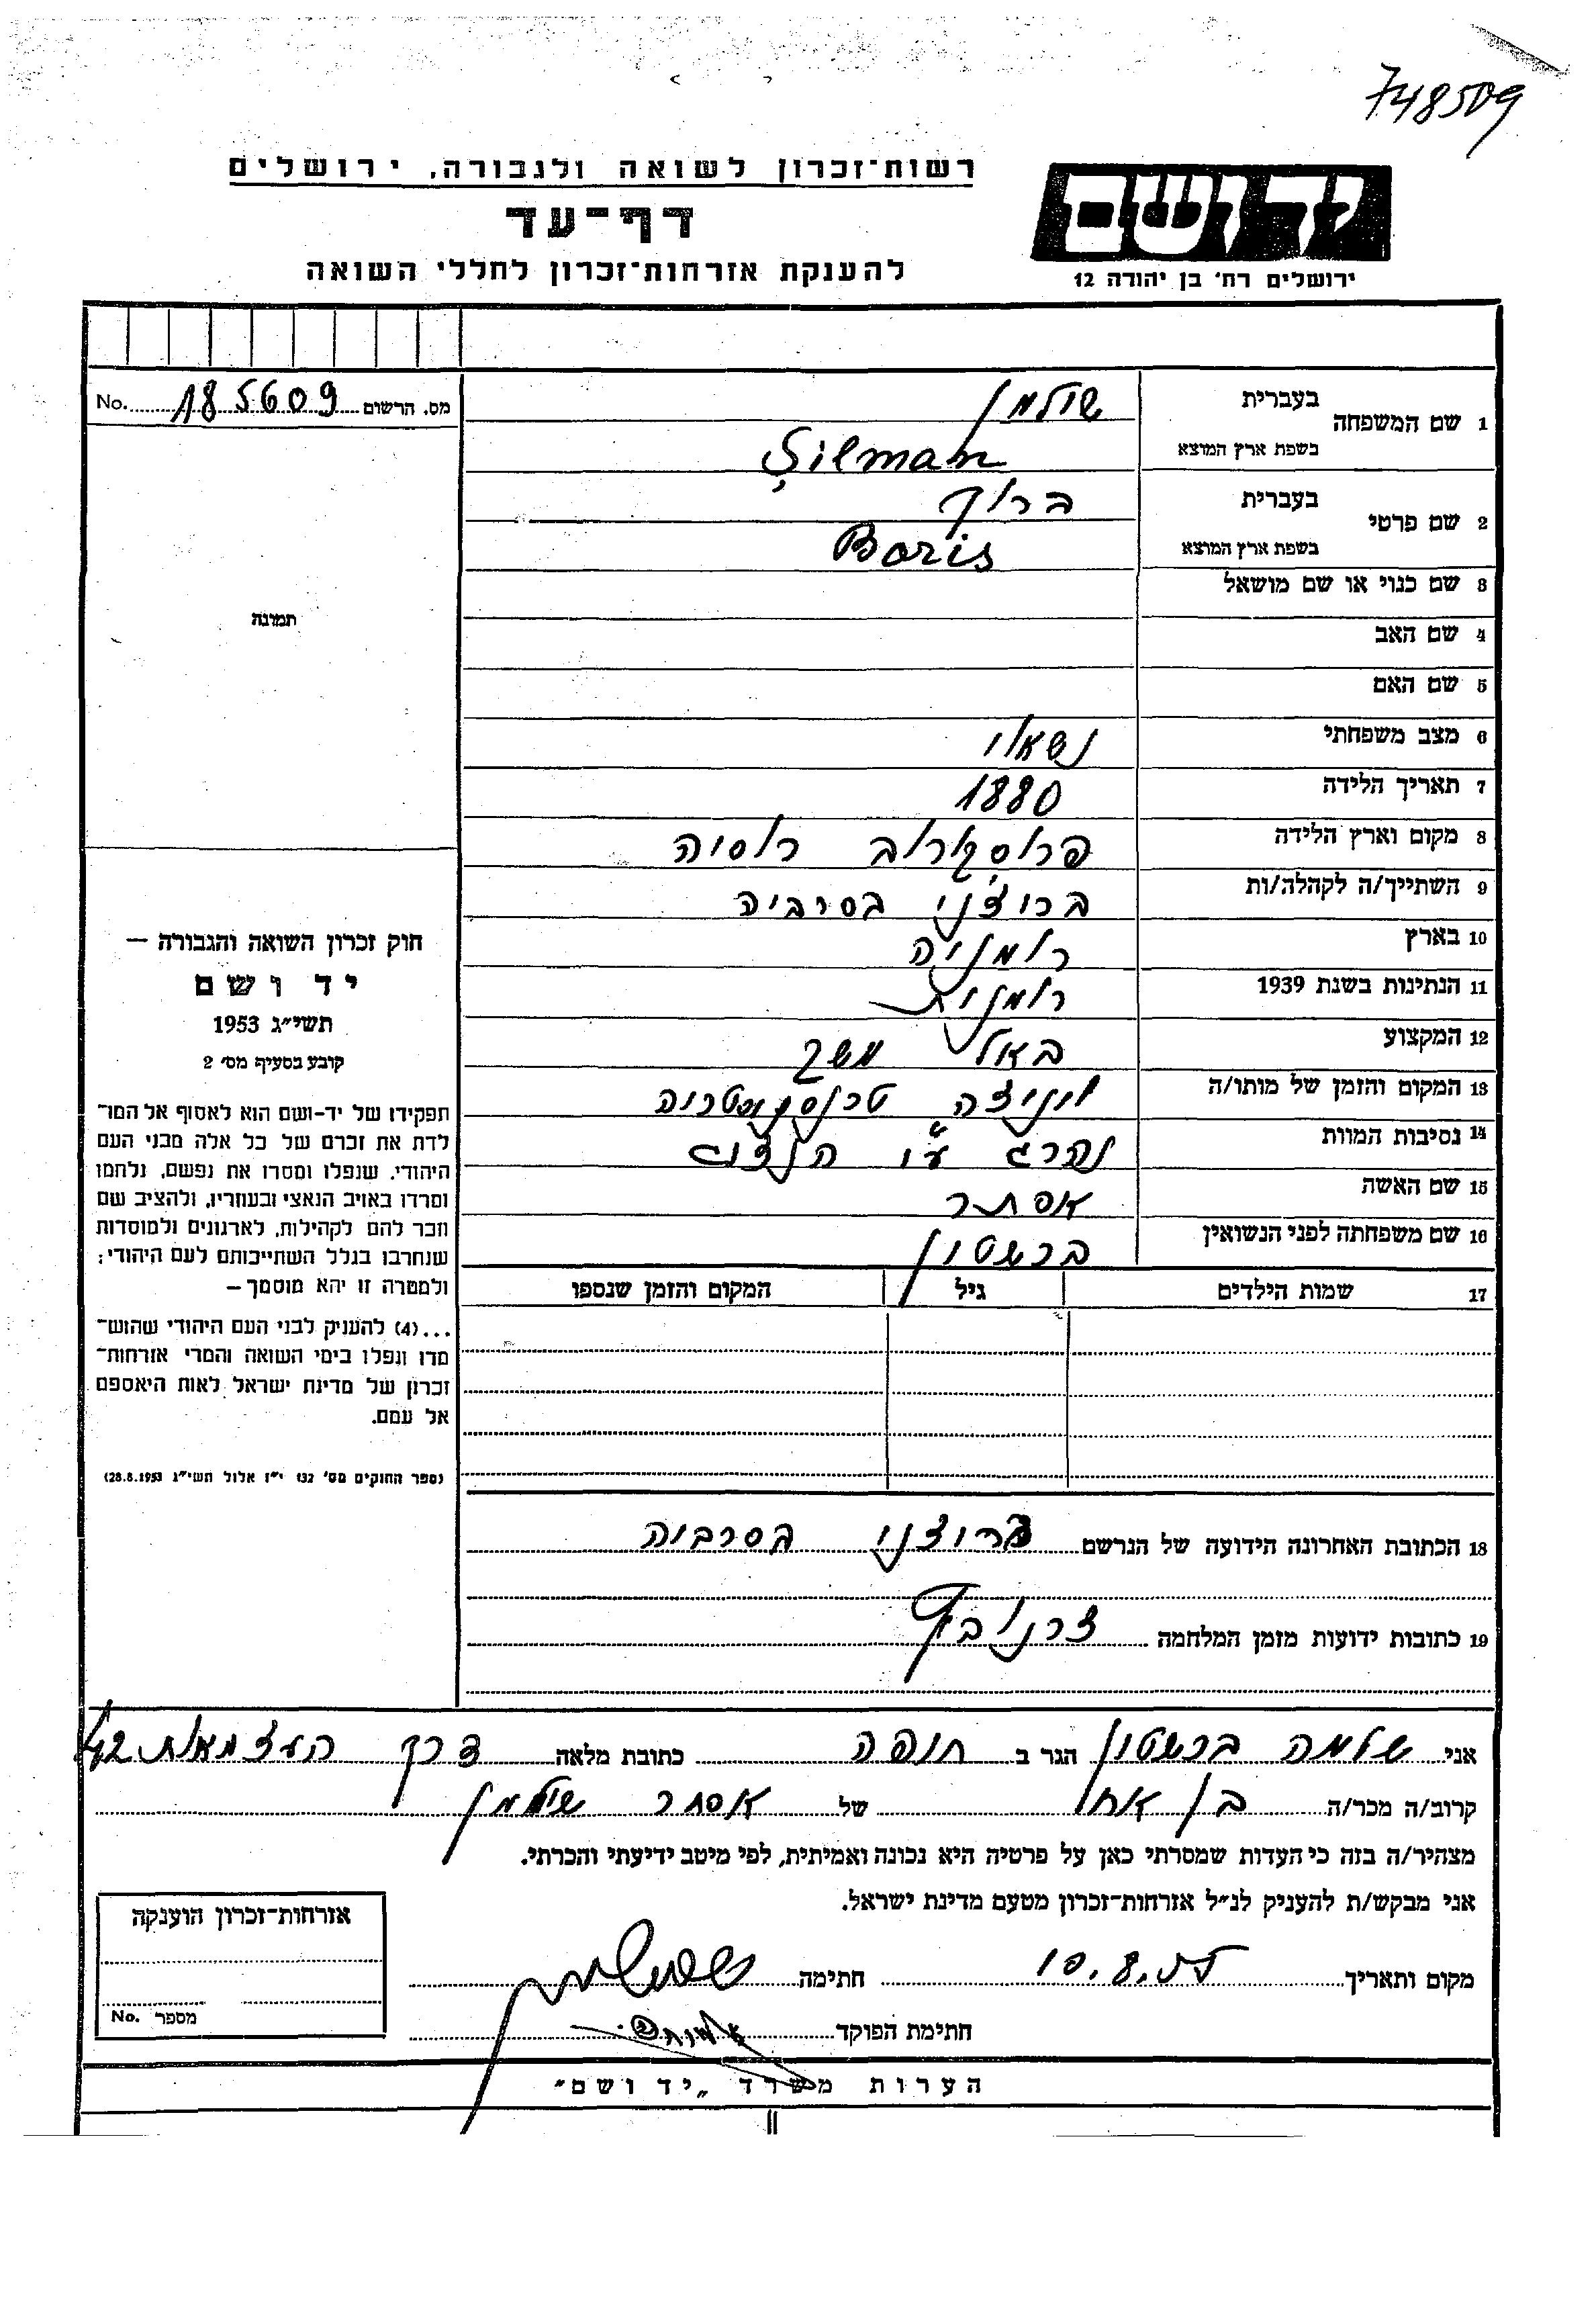 748509
רשות־זכרון לשואה ולגבורה, ירושלים
דף־עד
להענקת אזרחות־זכרון לחללי השואה
יד ושם
ירושלים רח' בן יהודה 12
מס. הרשום 185609 No.
תמונה
חוק זכרון השואה והגבורה —
יד ושם
תשי״ג 1953
קובע בסעיף מס' 2
תפקידו של יד-ושם הוא לאסוף אל המו־
לדת את זכרם של כל אלה מבני העם
היהודי, שנפלו ומסרו את נפשם, נלחמו
ומרדו באויב הנאצי ובעוזריו, ולהציב שם
וזכר להם לקהילות, לארגונים ולמוסדות
שנחרבו בגלל השתייכותם לעם היהודי;
ולמטרה זו יהא מוסמך —
...(4) להעניק לבני העם היהודי שהוש־
מדו ונפלו בימי השואה והמרי אזרחות־
זכרון של מדינת ישראל לאות היאספם
אל עמם.
(ספר החוקים מס' 132 י״ז אלול תשי״ג 28.8.1953)
1 שם המשפחה בעברית שילמן
בשפת ארץ המוצא Șilman
2 שם פרטי בעברית ברוך
בשפת ארץ המוצא Boris
3 שם כנוי או שם מושאל
4 שם האב
5 שם האם
6 מצב משפחתי נשאוי
7 תאריך הלידה 1880
8 מקום וארץ הלידה פרוסקורוב רוסיה
9 השתייך/ה לקהלה/ות בריצ'ני בסרביה
10 בארץ רומניה
11 הנתינות בשנת 1939 רומנית
12 המקצוע בעל משק
13 המקום והזמן של מותו/ה טרנסניסטריה
14 נסיבות המוות נהרג ע״י הנצים
15 שם האשה אסתר
16 שם משפחתה לפני הנשואין ברשטין
17 שמות הילדים גיל המקום והזמן שנספו
18 הכתובת האחרונה הידועה של הנרשם בריצני בסרביה
19 כתובות ידועות מזמן המלחמה
אני שלמה ברשטין הגר ב חיפה כתובת מלאה דרך העצמאות 42
קרוב/ה מכר/ה בן אחי של אסתר שילמן
מצהיר/ה בזה כי העדות שמסרתי כאן על פרטיה היא נכונה ואמיתית, לפי מיטב ידיעתי והכרתי.
אני מבקש/ת להעניק לנ״ל אזרחות־זכרון מטעם מדינת ישראל.
מקום ותאריך 10.8.55 חתימה
חתימת הפוקד
אזרחות־זכרון הוענקה
מספר No.
הערות משרד „יד ושם״